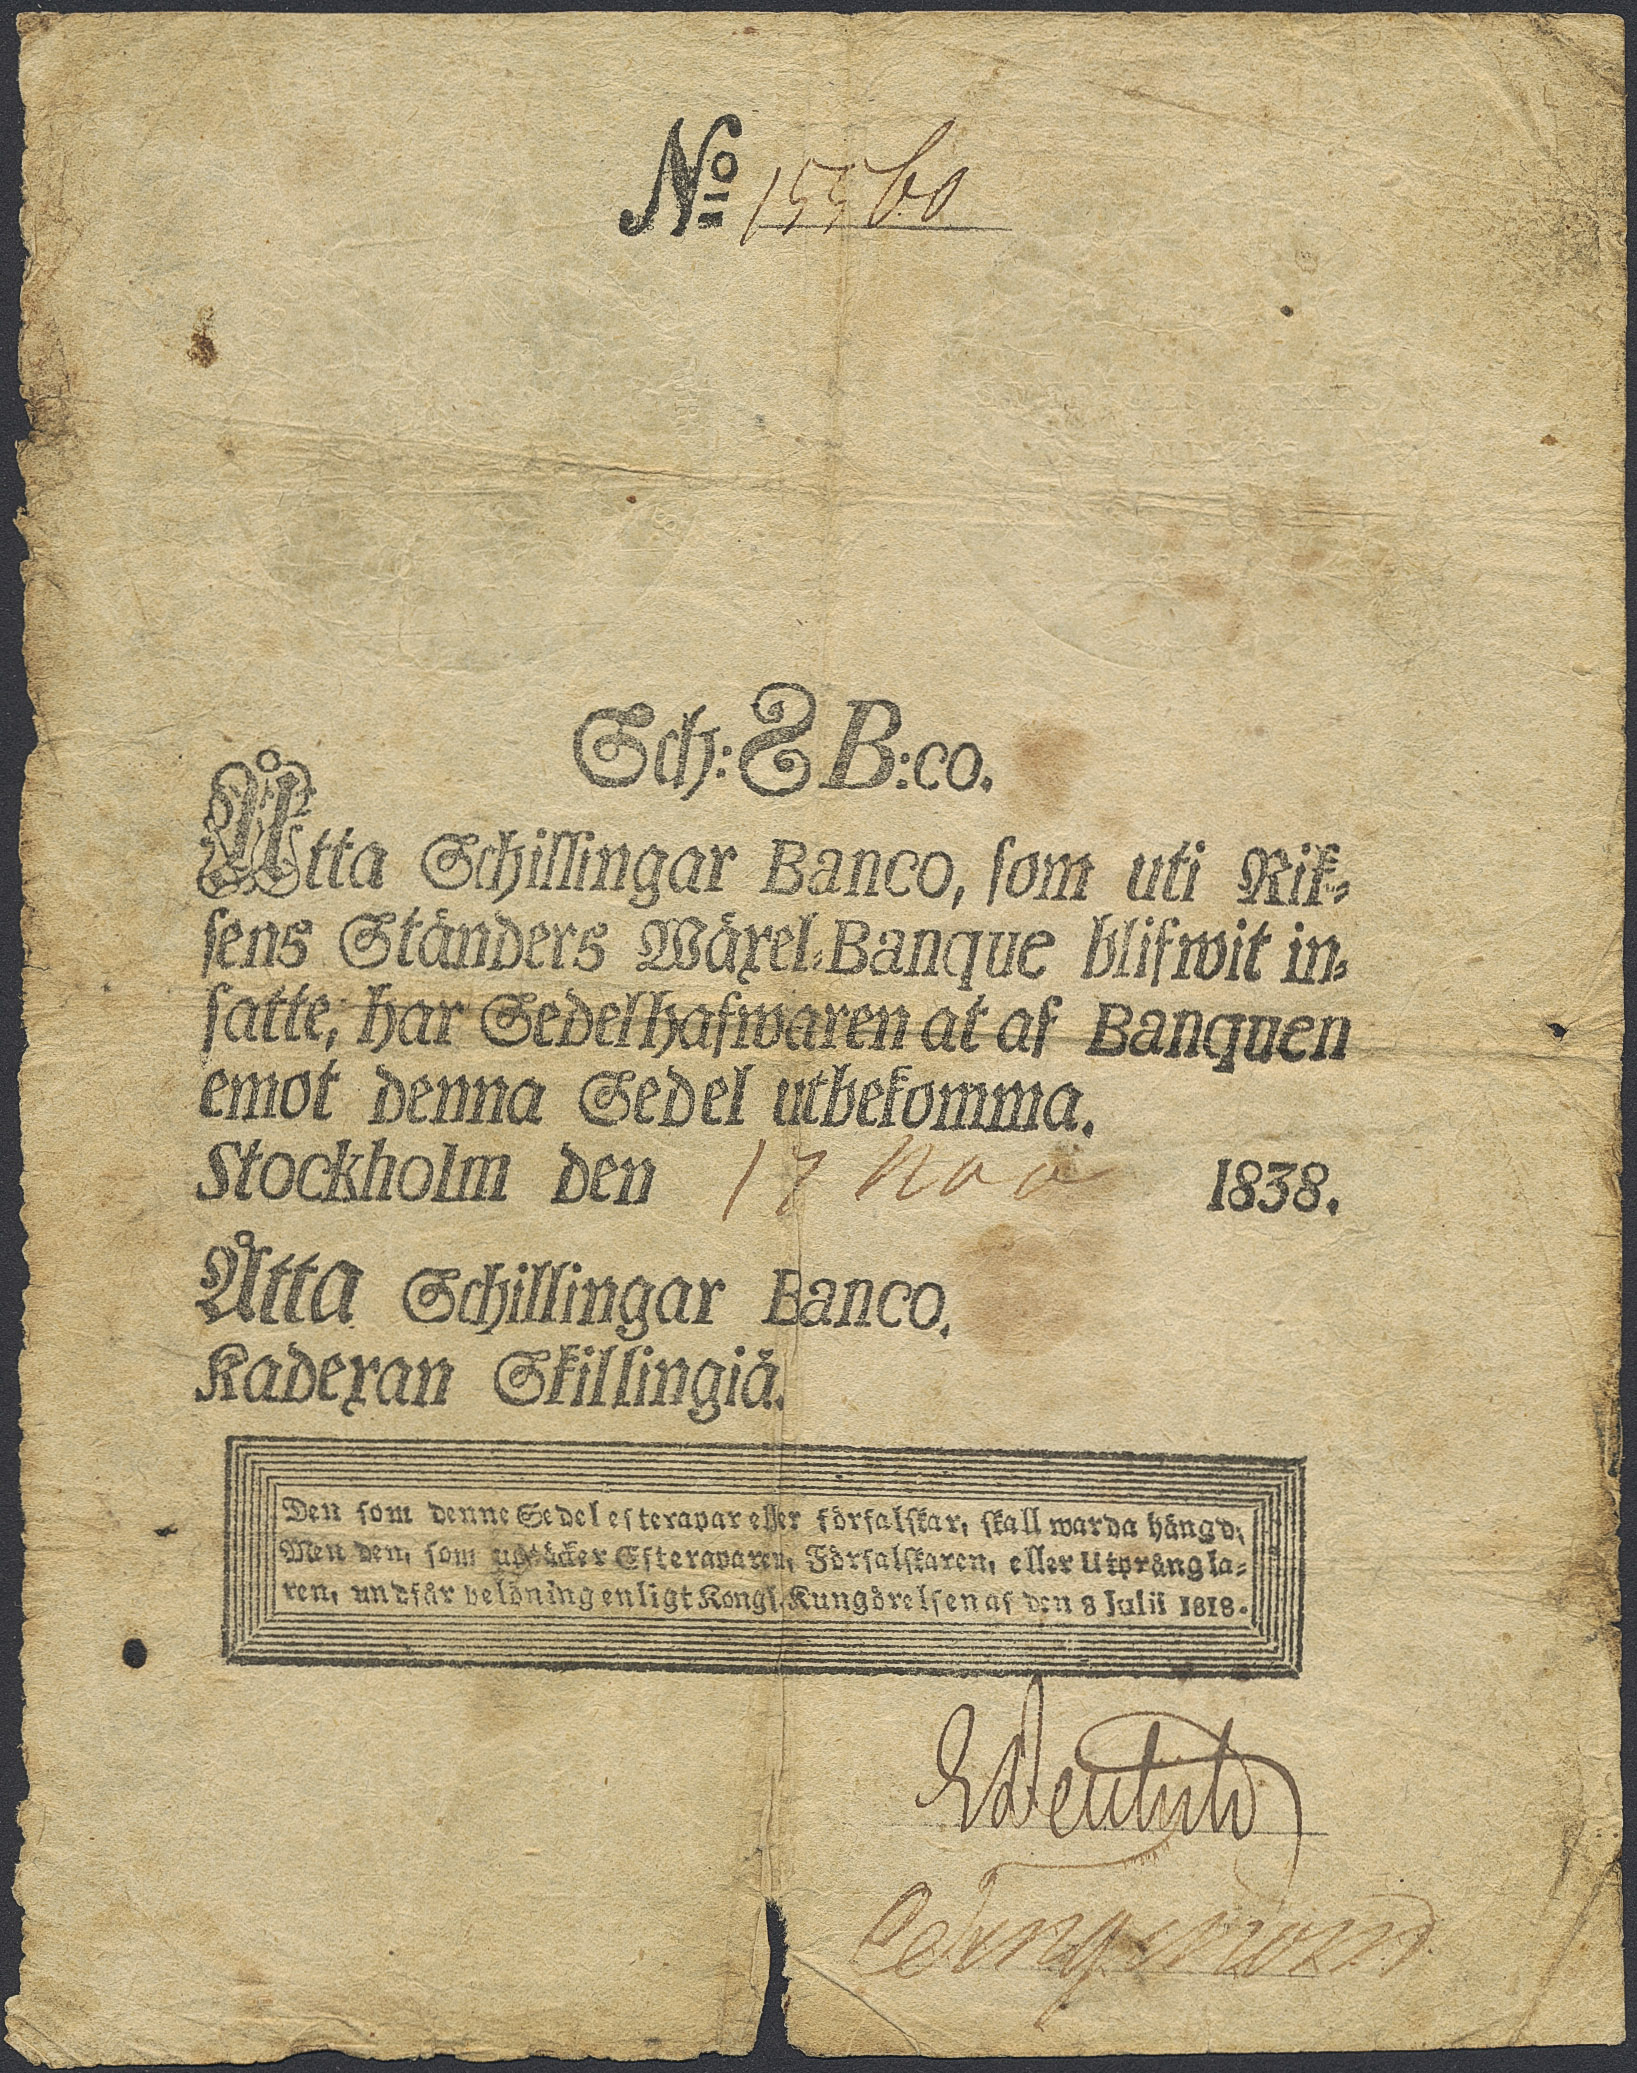 No 15560
Sch: 8 B:co.
Åtta Schillingar Banco, som uti Rik-
sens Ständers Wäxel-Banque blifwit in-
satte, har Sedelhafwaren at af Banquen
emot denna Sedel utbekomma.
Stockholm den 17 Nov 1838.
Åtta Schillingar Banco.
Kadexan Skillingiä.
Den som denne Sedel efterapar eller förfalskar, skall warda hängd;
Men den, som uptäcker Efteraparen, Förfalskaren, eller Utprångla-
ren, undfår belöning enligt Kongl. Kungörelsen af den 8 Julii 1818.